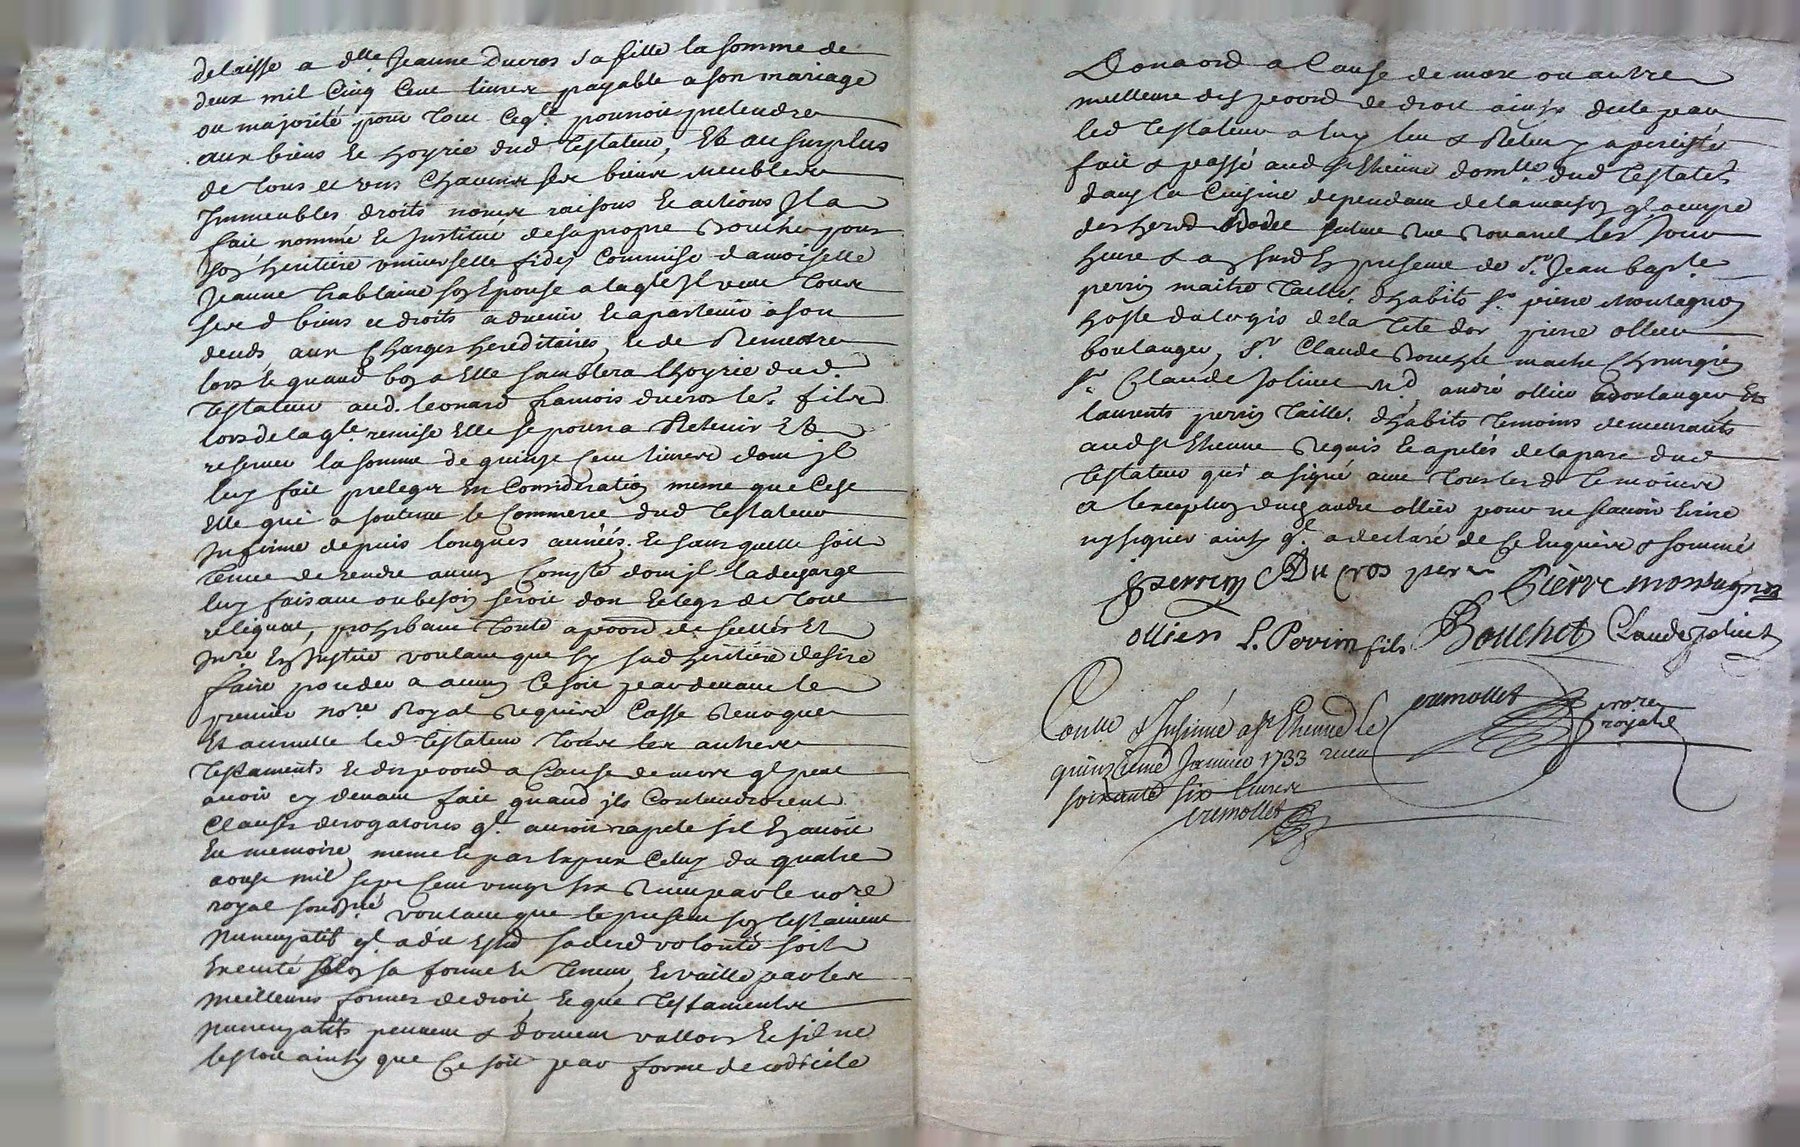 delaisse a dlle Jeanne Ducros sa fille la somme de
deux mil Cinq Cent livres payable a son mariage
ou majorité pour tout ceqle pourroit pretendre
aux biens et hoyrie dud Testateur, Et au surplus
de tous et uns chacuns ses biens meubles
Immeubles droits noms raisons et actions Il a
fait nommé et Institué de sa propre bouche pour
son heritiere universelle fidei Commise damoiselle
Jeanne Trablaine son Epouse a laqle Il veut tous
sesd biens et droits advenir et apartenir a son
deceds aux Charges hereditaires, et de Remettre
lors et quand bon a Elle semblera lhoyrie dud.
Testateur aud. leonard francois ducros led. fils
lors de laqle remise Elle se pourra Retenir Et
reserver la somme de quinze Cent livres dont jl
luy fait preleger En Consideration meme que Cest
Elle qui a soutenu le Commerce dud Testateur
Infirme depuis longues années. et sans quelle soit
tenue de rendre aucun Compte dont jl la decharge
luy faisant ou besoin seroit don et legs de tout
reliquat, prohibant toute apoon de scellés Et
Inre En Justice voulant que sy sad heritiere desire
faire proceder a aucun Ce soit pardevant le
premier nore Royal Requis Casse Revoque
Et annulle led Testateur tous les autres
Testaments et disposond a Cause de mort ql peut
avoir cy devant fait quand jls Contiendroient
Clauses derogatoires ql auroit rapelé sil En avoit
Eu memoire, meme et par Exprex Celuy du quatre
aoust mil sept Cent vingt six Receu par le nore
royal soussné voulant que le present son testament
nuncupatif ql a dit Estre sa dere volonté soit
Executé selon sa forme et teneur, et vaille par les
meilleures formes de droit et que Testaments
nuncupatifs peuvent & doivent valloir et sil ne
lestoit ainsy que Ce soit par forme de codicile
Donaond a Cause de mort ou autre
meilleure dispoond de droit ainsy dicté par
led Testateur a luy leu & Releu y a persisté
fait & passé aud st Etienne domlle dud Testatr
dans la Cuisine dependant de la maison ql occupe
des herd Rodet située Rue Rouanel les Jour
heure & an susd En presence de Sr. Jean bapte
perrin maitre taillr. dhabits sr pierre Montagnon
hoste du logis de la tete dor pierre ollier
boulanger, Sr Claude bouchet maitre Chirurgien
sr Claude Jolivet md, andré ollier boulanger Et
laurents perrin taillr. dhabits temoins demeurants
aud st Etienne Requis et apelés de la part dud
Testateur qui a signé avec tous lesd temoins
a lexception dud andre ollier pour ne scavoir Ecrire
ny signer ainsy ql a declaré de Ce Enquis & sommé
perrin Du Cros pere Pierre montagnon
ollier L. Perrin fils Bouchet Claude Jolivet
Conlle & Insinué a st Etienne le
quinzieme Janvier 1733 receu
soixante six livres
cremollet
cremollet nore
royal